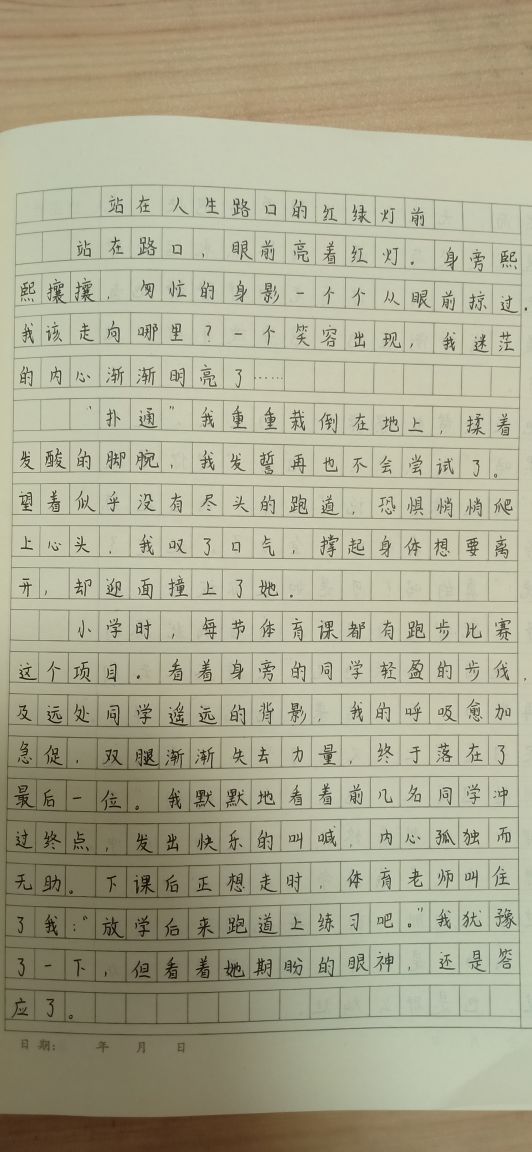 站在人生路口的红绿灯前
站在路口，眼前亮着红灯。身旁熙
熙攘攘，匆忙的身影一个个从眼前掠过。
我该走向哪里？一个笑容出现，我迷茫
的内心渐渐明亮了……
“扑通”我重重栽倒在地上，揉着
发酸的脚腕，我发誓再也不会尝试了。
望着似乎没有尽头的跑道，恐惧悄悄爬
上心头，我叹了口气，撑起身体想要离
开，却迎面撞上了她。
小学时，每节体育课都有跑步比赛
这个项目。看着身旁的同学轻盈的步伐，
及远处同学遥远的背影，我的呼吸愈加
急促，双腿渐渐失去力量，终于落在了
最后一位。我默默地看着前几名同学冲
过终点，发出快乐的叫喊，内心孤独而
无助。下课后正想走时，体育老师叫住
了我：“放学后来跑道上练习吧。”我犹豫
了一下，但看着她期盼的眼神，还是答
应了。
日期： 年 月 日